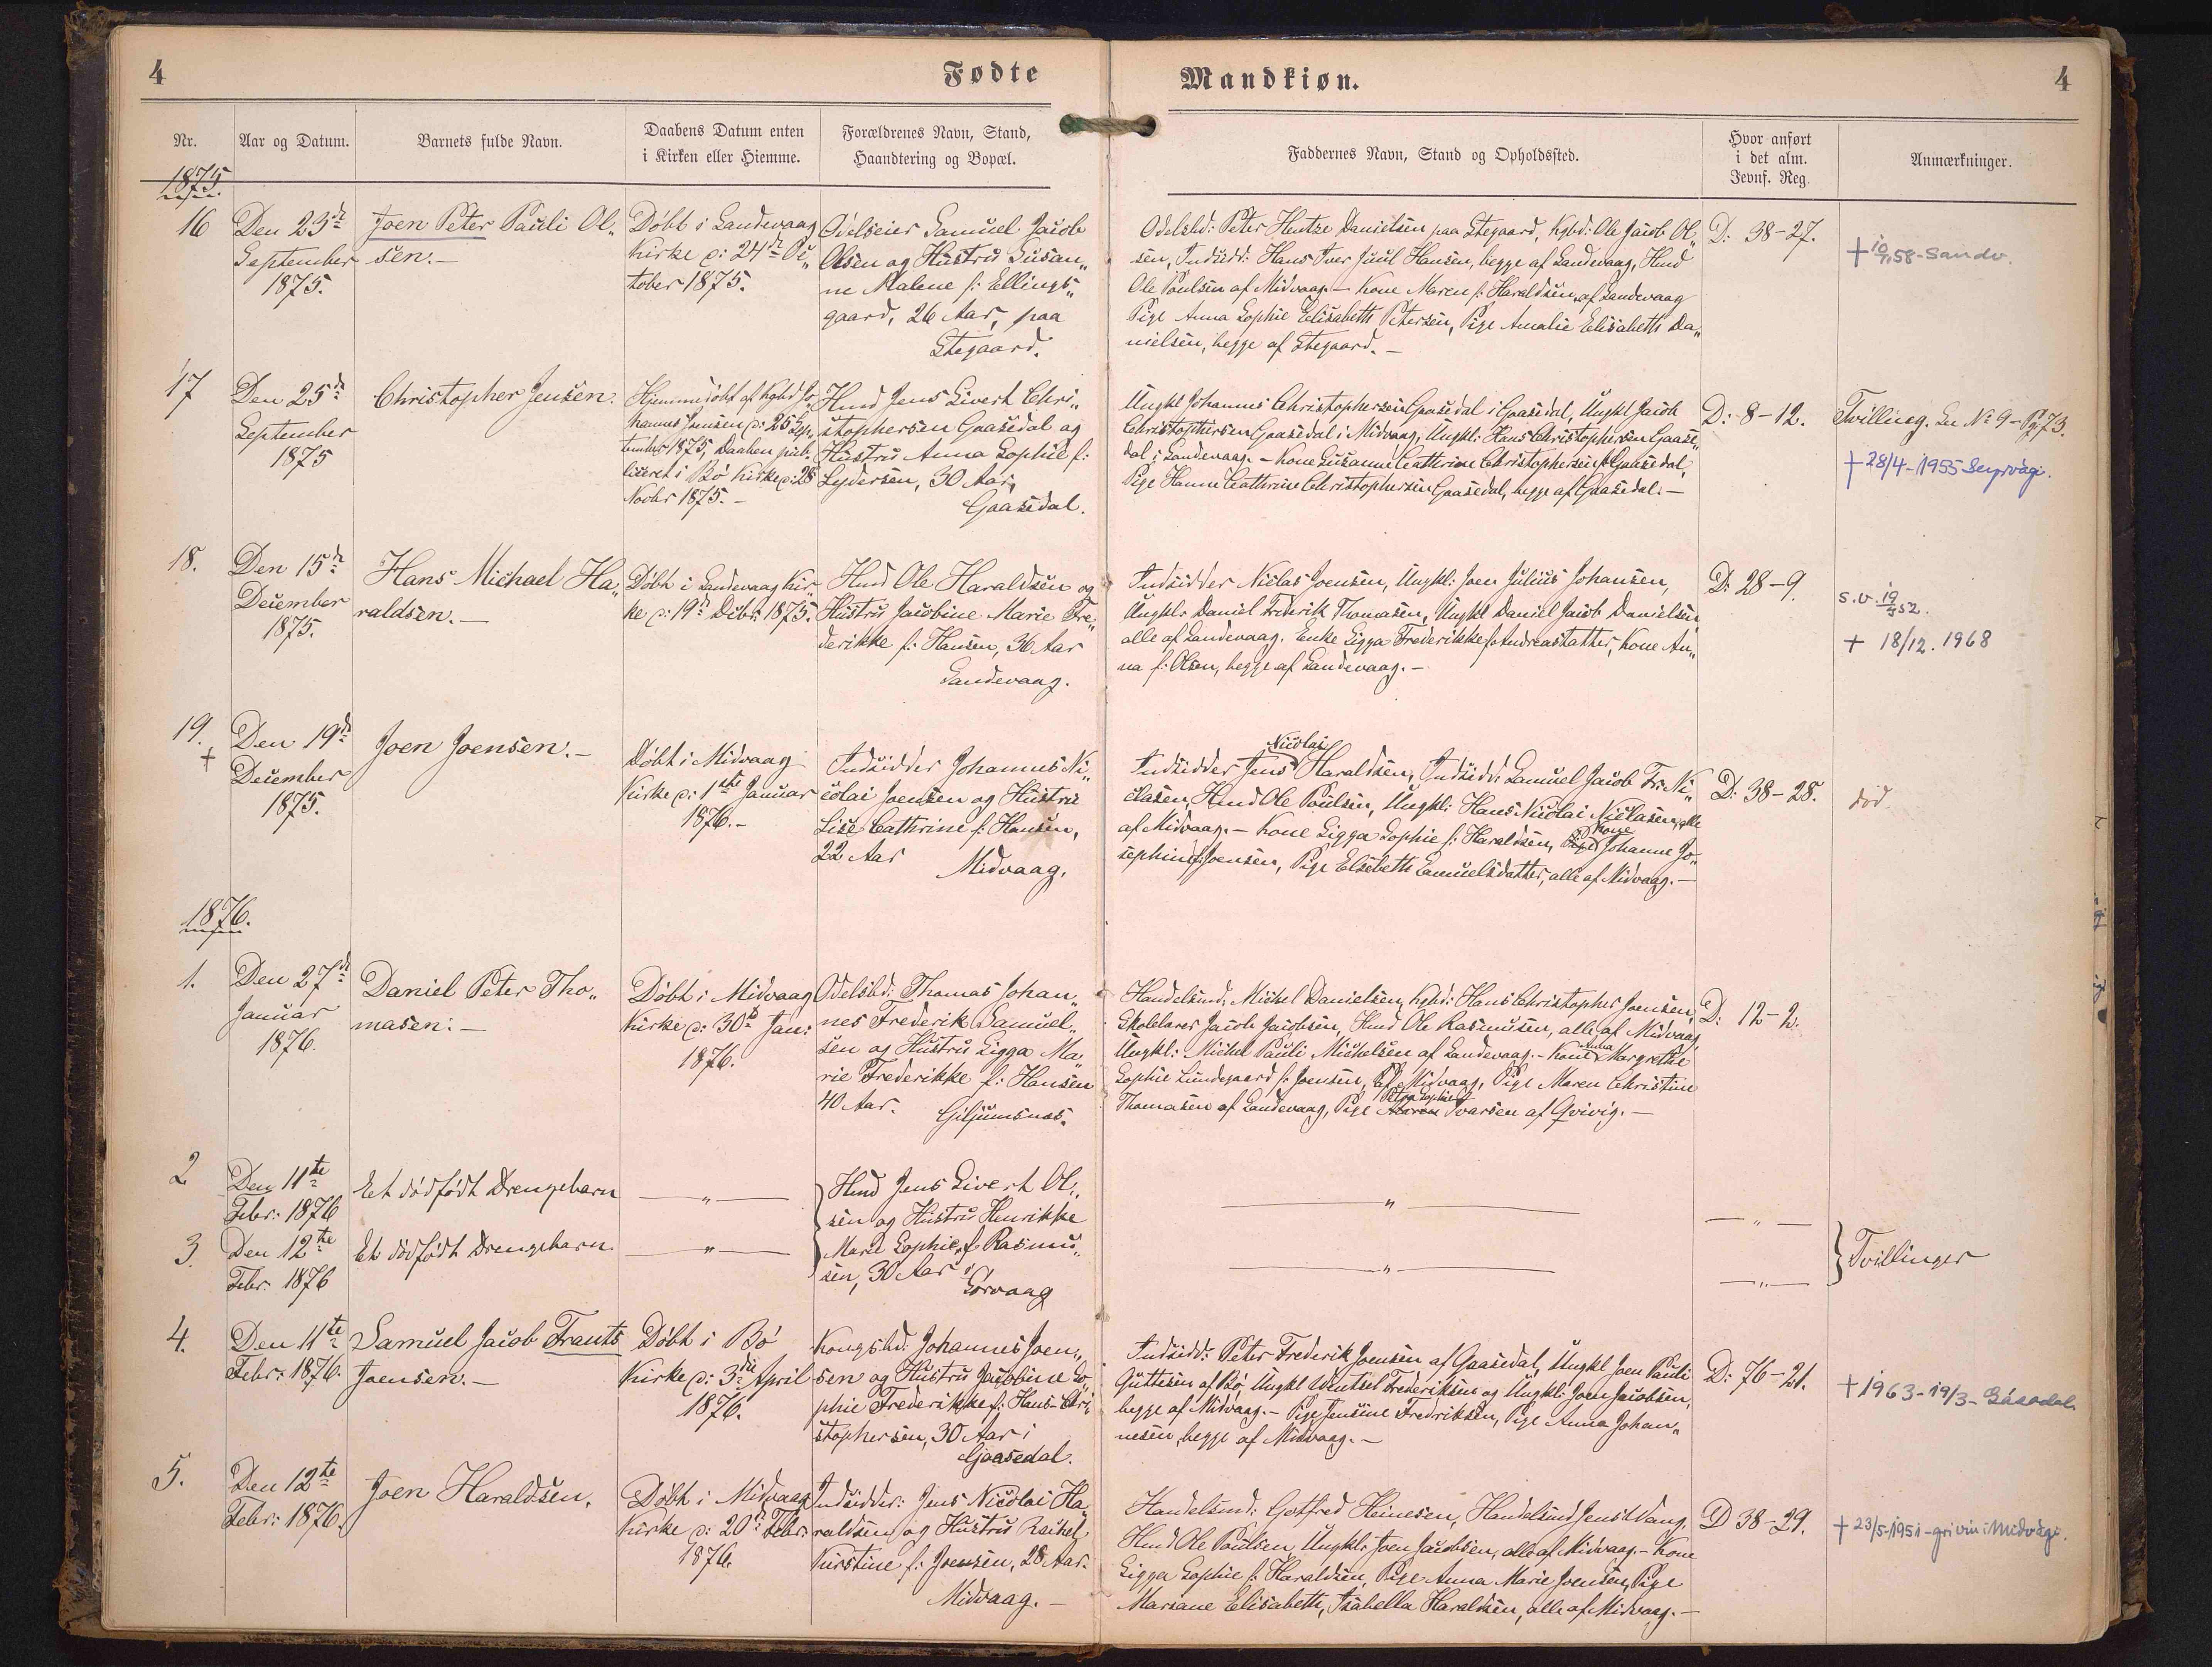 4
Fødte
Mandkiøn.
4
Nr.
Aar og Datum.
Barnets fulde Navn.
Daabens Datum enten
i Kirken eller Hiemme.
Forældrenes Navn, Stand,
Haandtering og Bopæl.
Faddernes Navn, Stand og Opholdssted.
Hvor anført
i det alm.
Jevnf. Reg.
Anmærkninger.
1875.
16
Den 23de
September
1875.
Joen Peter Pauli Ol„
sen.-
Døbt i Sandevaag
Kirke d: 24de Oc„
tober 1875.
Odelseier Samuel Jacob
Olsen og Hustru Susan„
ne Malene f: Ellings„
gaard, 26 Aar, paa
Stegaard.
Odelsbd: Peter Hentze Danielsen paa Stegaard, Kgbd: Ole Jacob Ol„
sen, Indsidd: Hans Iver Juul Hansen, begge af Sandevaag, Hmd
Ole Poulsen af Midvaag.- Kone Maren f: Haraldsen, af Sandevaag
Pige Anna Sophie Elisabeth Petersen, Pige Amalie Elisabeth Da„
nielsen, begge af Stegaard.-
D: 38-27.
+ 10/9 58-Sandv.
17
Den 25de
September
1875
Christopher Jensen.
Hjemmedøbt af Kgbd Jo„
hannes Joensen d: 25 Sep„
tember 1875, Daaben pub„
liceret i Bø Kirke d: 28
Novbr 1875.-
Hmd Jens Sivert Chri„
stophersen Gaasedal og
Hustru Anna Sophie f:
Lydersen, 30 Aar,
Gaasedal.
Ungkl Johannes Christophersen Gaasedal i Gaasedal, Ungkl Jacob
Christophersen Gaasedal i Midvaag, Ungkl: Hans Christophersen Gaase„
dal i Sandevaag.- Kone Susanne Cathrine Christophersen f: Gaasedal,
Pige Hanne Cathrine Christophersen Gaasedal, begge af Gaasedal.-
D: 8-12.
Tvilling. Se No 9- Pg. 73.
+ 28/4-1955 Sørvági.
18.
Den 15de
December
1875.
Hans Michael Ha„
raldsen.-
Døbt i Sandevaag Kir„
ke d: 19de Decbr 1875.
Hmd Ole Haraldsen og
Hustru Jacobine Marie Fre„
derikke f: Hansen, 36 Aar
Sandevaag.
Indsidder Niclas Joensen, Ungkl: Joen Julius Johansen,
Ungkl: Daniel Frederik Thomasen, Ungkl Daniel Jacob Danielsen
alle af Sandevaag. Enke Sigga Frederikke f. Andreasdatter, Kone An„
na f: Olsen, begge af Sandevaag.-
D: 28-9.
s.v. 19/5 52.
+ 18/12. 1968
19.
+
Den 19de
December
1875.
Joen Joensen.-
Døbt i Midvaag
Kirke d: 1ste Januar
1876.-
Indsidder Johannes Ni„
colai Joensen og Hustru
Lise Cathrine f: Hansen,
22 Aar
Midvaag.
Nicolai
Indsidder Jens Haraldsen, Indsidd: Samuel Jacob Fr: Ni„
clasen, Hmd Ole Poulsen, Ungkl: Hans Nicolai Niclasen, alle
af Midvaag.- Kone Sigga Sophie f: Haraldsen, Pige Kone Johanne Jo„
sephine f: Joensen, Pige Elsebeth Samuelsdatter, alle af Midvaag.-
D: 38-28.
död
1876.
1.
Den 27de
Januar
1876.
Daniel Peter Tho„
masen.-
Døbt i Midvaag
Kirke d: 30te Jan:
1876.
Odelsbd: Thomas Johan„
nes Frederik Samuel„
sen og Hustru Sigga Ma„
rie Frederikke f: Hansen
40 Aar.
Giljumsnæs.
Handelsmd: Michel Danielsen, Kgbd: Hans Christopher Joensen,
Skolelærer Jacob Jacobsen, Hmd Ole Rasmusen, alle af Midvaag,
Ungkl: Michel Pauli Michelsen af Sandevaag.- Kone Anna Margrethe
Sophie Lundsgaard f: Joensen, af Midvaag, Pige Maren Christine
Petra Sophie
Thomasen af Sandevaag, Pige Maren Ivarsen af Qvivig.-
D: 12-2.
2
Den 11te
Febr: 1876
Et dødfødt Drengebarn
-„-
Hmd Jens Sivert Ol„
sen og Hustru Henrikke
Marie Sophie, f: Rasmu„
sen, 30 Aar i
Sørvaag
-„-
-„-
3.
Den 12te
Febr. 1876
Et dødfødt Drengebarn
-„-
-„-
-„-
Tvillinger
4.
Den 11te
Febr: 1876.
Samuel Jacob Frants
Joensen.-
Døbt i Bø
Kirke d: 3die April
1876.
Kongsbd: Johannes Joen„
sen og Hustru Jacobine So„
phie Frederikke f: Hans-Chri„
stophersen, 30 Aar i
Gaasedal.
Indsidd: Peter Frederik Joensen af Gaasedal, Ungkl Joen Pauli
Guttesen af Bø, Ungkl Wentsel Frederiksen og Ungkl: Joen Jacobsen,
begge af Midvaag.- Pige Jensine Fredriksen, Pige Anna Johan„
nesen, begge af Midvaag.-
D: 76-21.
+ 1963-19/3- Gásadal.
5.
Den 12te
Febr: 1876.
Joen Haraldsen.
Døbt i Midvaag
Kirke d: 20de Febr.
1876.
Indsidder: Jens Nicolai Ha„
raldsen og Hustru Rachel
Kirstine f: Joensen, 28 Aar.
Midvaag.-
Handelsmd: Gotfred Heinesen, Handelsmd Jens Vang,
Hmd Ole Poulsen Ungkl: Joen Jacobsen, alle af Midvaag.- Kone
Sigga Sophie f: Haraldsen, Pige Anna Marie Joensen, Pige
Mariane Elisabeth, Isabella Haraldsen, alle af Midvaag.-
D 38-29.
+ 23/5-1951- i Midvági.